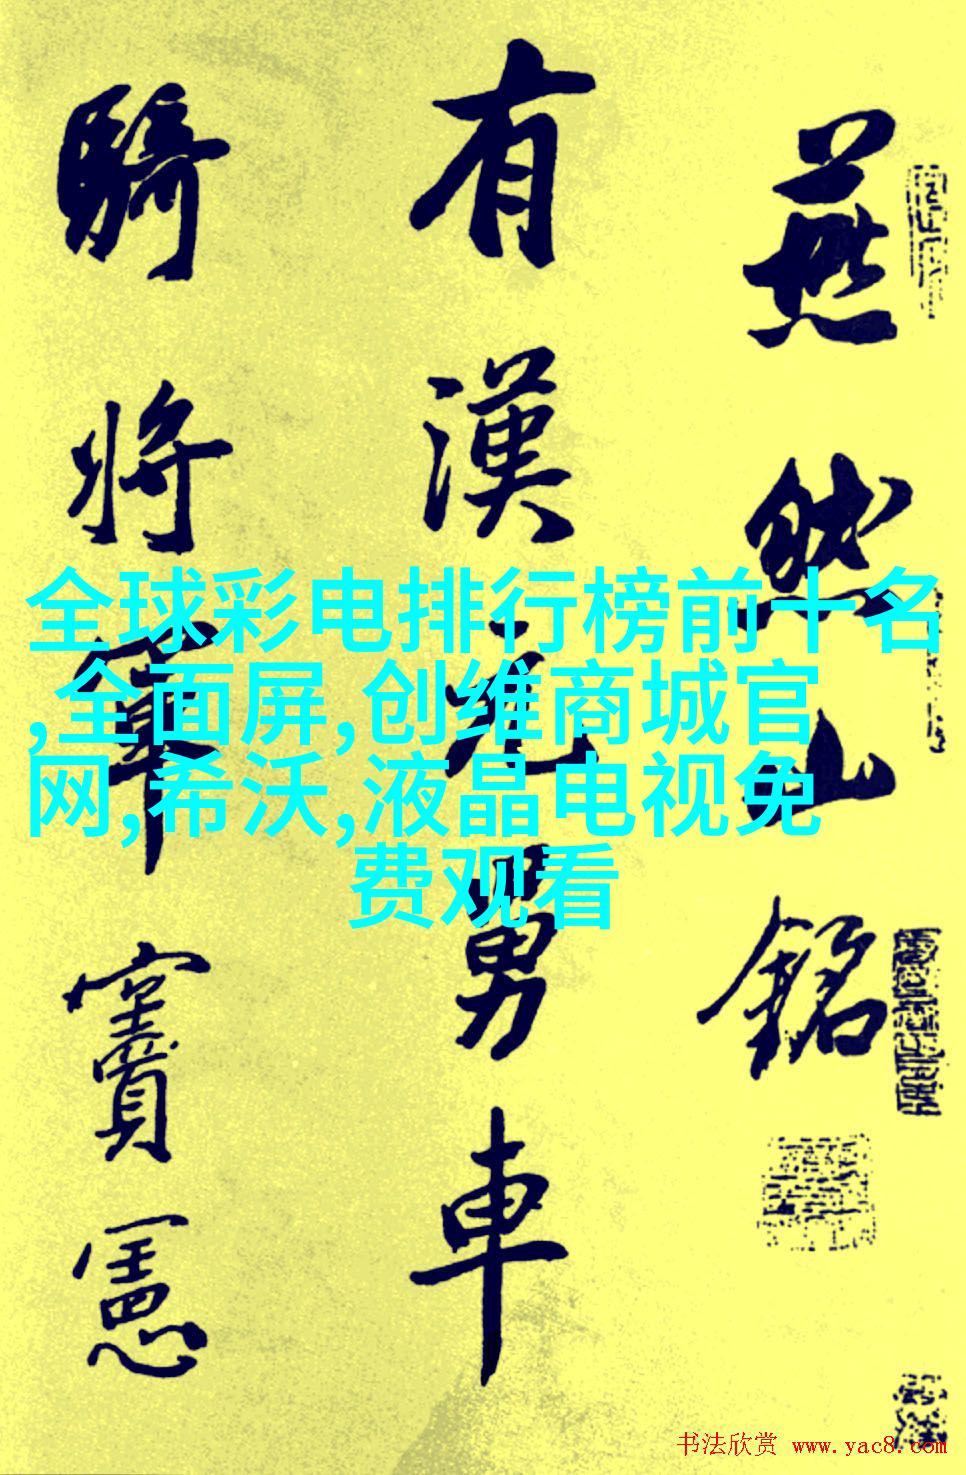 燕然山銘
有漢元舅車
騎將軍竇憲
全球彩电排行榜前十名
,全面屏,创维商城官
网,希沃,液晶电视免
费观看
书法欣赏 www.yac8.com